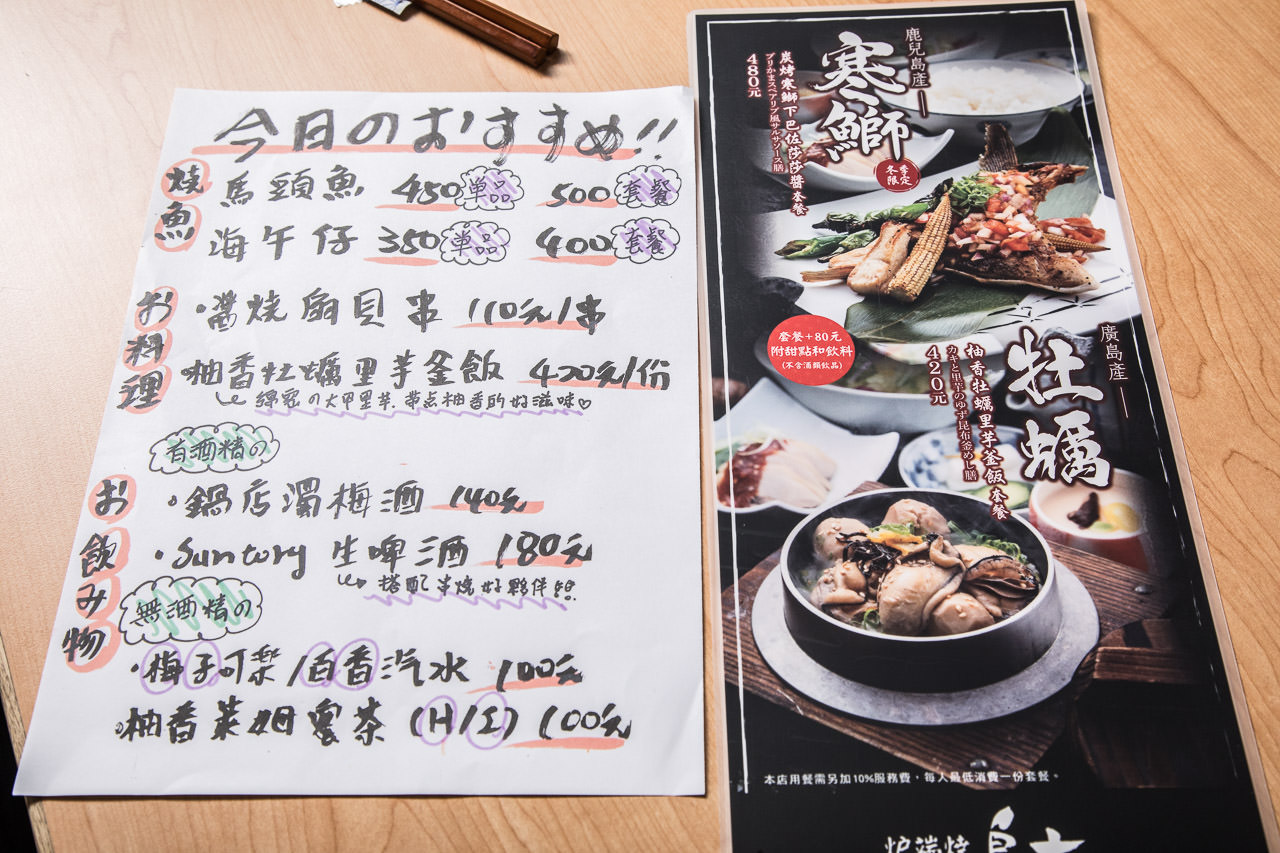 今日のおすすめ!!
燒魚
馬頭魚 450 単品 500 套餐
海午仔 350 単品 400 套餐
お料理
・醬燒扇貝串 110元/串
・柚香牡蠣里芋釜飯 420元/份
綿密の大甲里芋,帶点柚香的好滋味♡
お飲み物
有酒精の
・鍋店濁梅酒 140元
・Suntory 生啤酒 180元
搭配串燒好夥伴
無酒精の
・梅子可樂/百香汽水 100元
・柚香萊姆蜜茶 (H/I) 100元
鹿兒島產
寒鰤
冬季限定
炭烤寒鰤下巴佐莎莎醬套餐
ブリかまスペアリブ風サルサソース膳
480元
套餐+80元
附甜點和飲料
(不含酒類飲品)
廣島產
牡蠣
柚香牡蠣里芋釜飯套餐
カキと里芋のゆず昆布釜めし膳
420元
本店用餐需另加10%服務費,每人最低消費一份套餐。
炉端燒